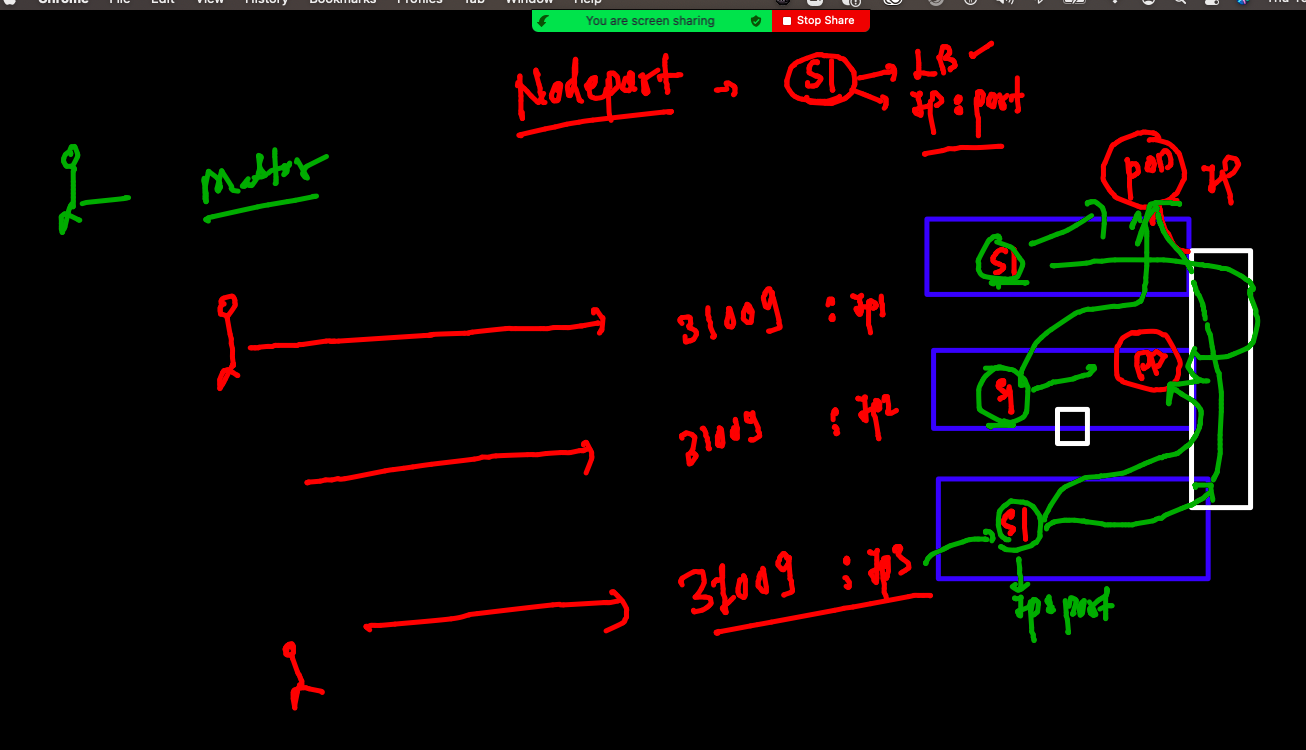 Chrome File Edit View History Bookmarks Profiles Tab Window Help
You are screen sharing Stop Share
Nodeport → S1 LB
IP : port
Master
pod IP
S1
31009 : IP1
pp
S1
31009 : IP2
S1
31009 : IP3
IP: port